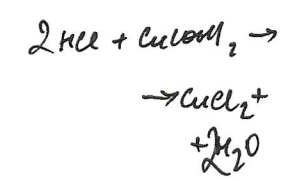 2HCl + Cu(OH)₂ →
→ CuCl₂ +
+ 2H₂O